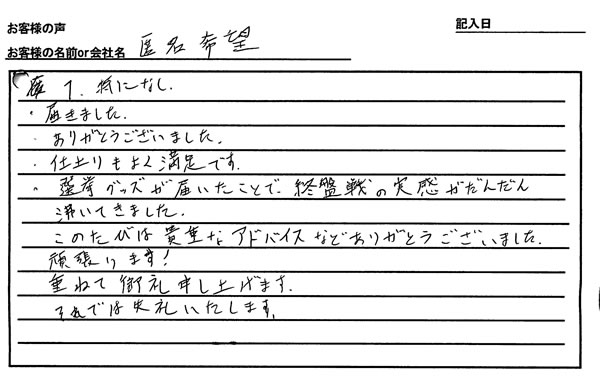 お客様の声
記入日
お客様の名前or会社名 匿名希望
1. 特になし.
・届きました.
・ありがとうございました.
・仕上りもよく満足です.
・選挙グッズが届いたことで 終盤戦の実感がだんだん
沸いてきました.
このたびは貴重なアドバイスなどありがとうございました.
頑張ります!
重ねて御礼申し上げます.
それでは失礼いたします.